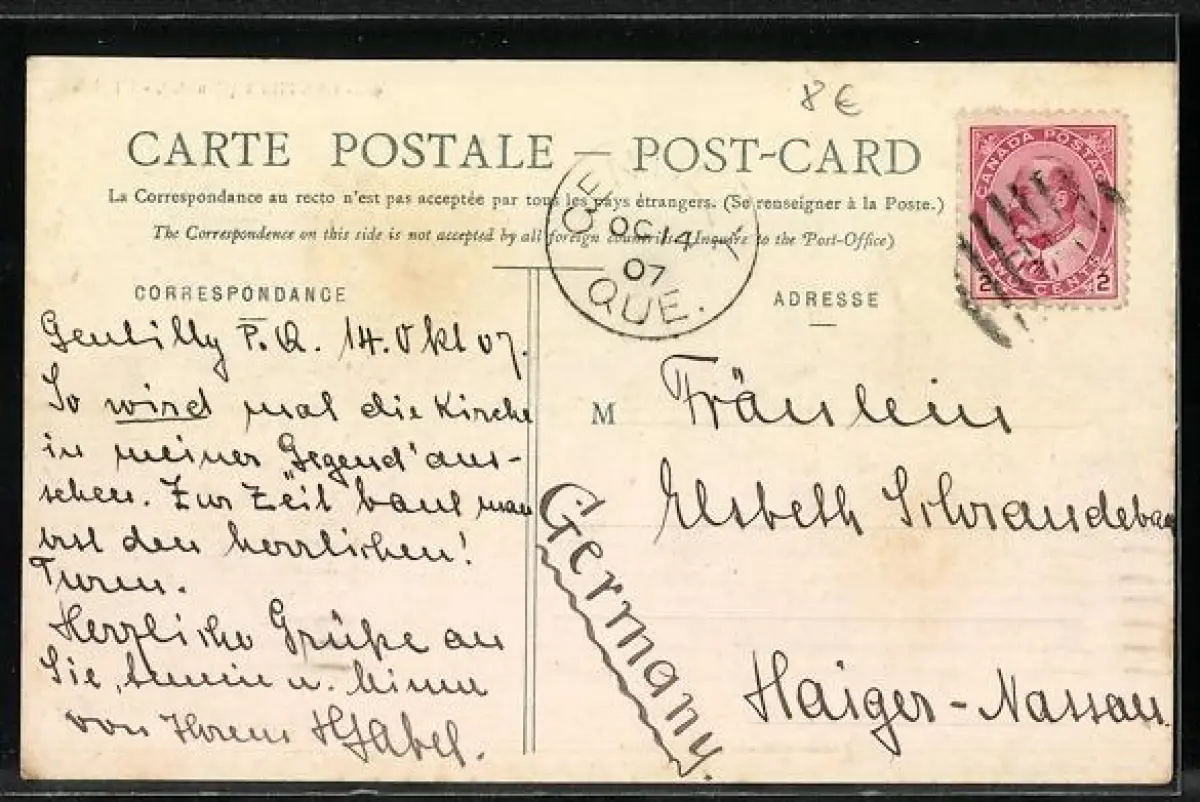 8 €
CARTE POSTALE — POST-CARD
La Correspondance au recto n'est pas acceptée par tous les pays étrangers. (Se renseigner à la Poste.)
The Correspondence on this side is not accepted by all foreign countries (Inquire to the Post-Office)
CANADA POSTAGE
2 TWO CENTS 2
OC 14
07
QUE.
CORRESPONDANCE
Gentilly P.Q. 14. Okt 07.
So wird mal die Kirche
in meiner "Gegend" aus-
sehen. Zur Zeit baut man
erst den herrlichen!
Turm.
Herzliche Grüße an
Sie,
von Ihrem
ADRESSE
M Fräulein
Elsbeth
Haiger-Nassau.
Germany.